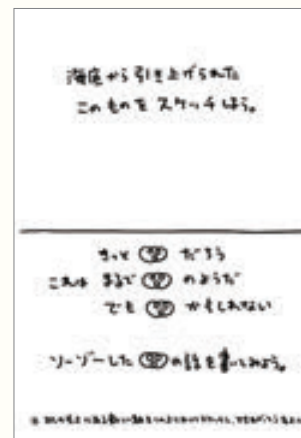 海底から引き上げられた
このものをスケッチしよう。
きっと だろう
これは まるで のようだ
でも かもしれない
ソーゾーした の話を書いてみよう。